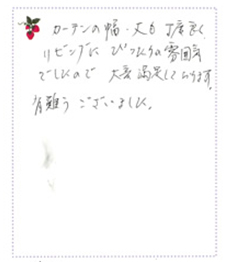 カーテンの幅・丈も丁度良く
リビングにぴったりの雰囲気
でしたので 大変満足しております。
有難うございました。